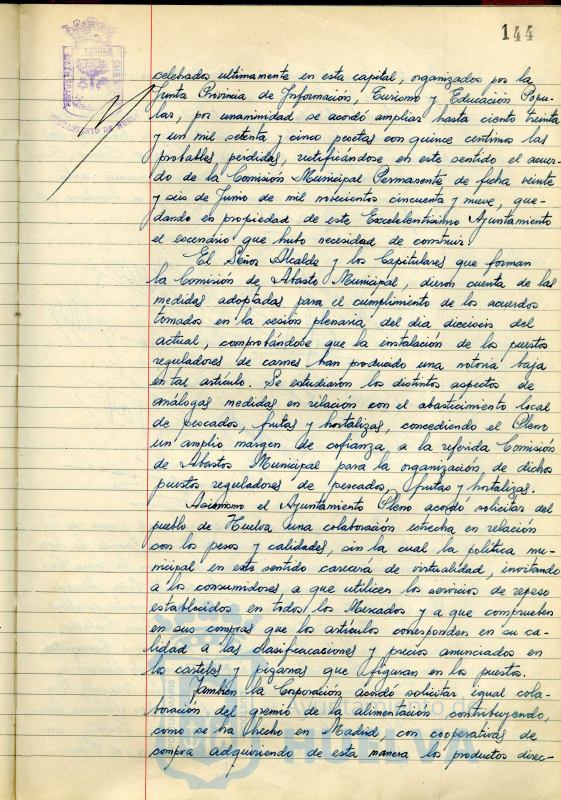 144
celebrados ultimamente en esta capital, organizados por la
Junta Provincia de Información, Turismo y Educación Popu-
lar, por unanimidad se acordó ampliar hasta ciento treinta
y un mil setenta y cinco pesetas con quince centimos las
probables perdidas, rectificándose en este sentido el acuer-
do de la Comisión Municipal Permanente de fecha veinte
y seis de Junio de mil novecientos cincuenta y nueve, que-
dando en propiedad de este Excelentisimo Ayuntamiento
el escenário que hubo necesidad de construir
El Señor Alcalde y los Capitulares que forman
la Comisión de Abasto Municipal, dieron cuenta de las
medidas adoptadas para el cumplimiento de los acuerdos
tomados en la sesión plenaria, del dia dieciseis del
actual, comprobándose que la instalación de los puestos
reguladores de carnes han producido una notoria baja
en tal artículo. Se estudiaron los distintos aspectos de
análogas medidas en relación con el abasticimiento local
de pescados, frutas y hortalizas, concediendo el Pleno
un amplio margen de cofianza a la referida Comisión
de Abastos Municipal para la organización de dichos
puestos reguladores de pescados, frutas y hortalizas.
Asimismo el Ayuntamiento Pleno acordó solicitar del
pueblo de Huelva una colaboración estrecha en relación
con los pesos y calidades, sin la cual la política mu-
nicipal en este sentido carecerá de virtualidad, invitando
a los consumidores a que utilicen los servicios de repeso
establecidos en todos los Mercados y a que comprueben
en sus compras que los artículos corresponden en su ca-
lidad a las clasificaciones y precios anunciados en
los carteles y pizarras que figuran en los puestos.
Tambien la Corporación acordó solicitar igual cola-
boración del gremio de la alimentación contribuyendo,
como se ha hecho en Madrid con cooperativas de
compra adquiriendo de esta manera los productos direc-
HUELVA